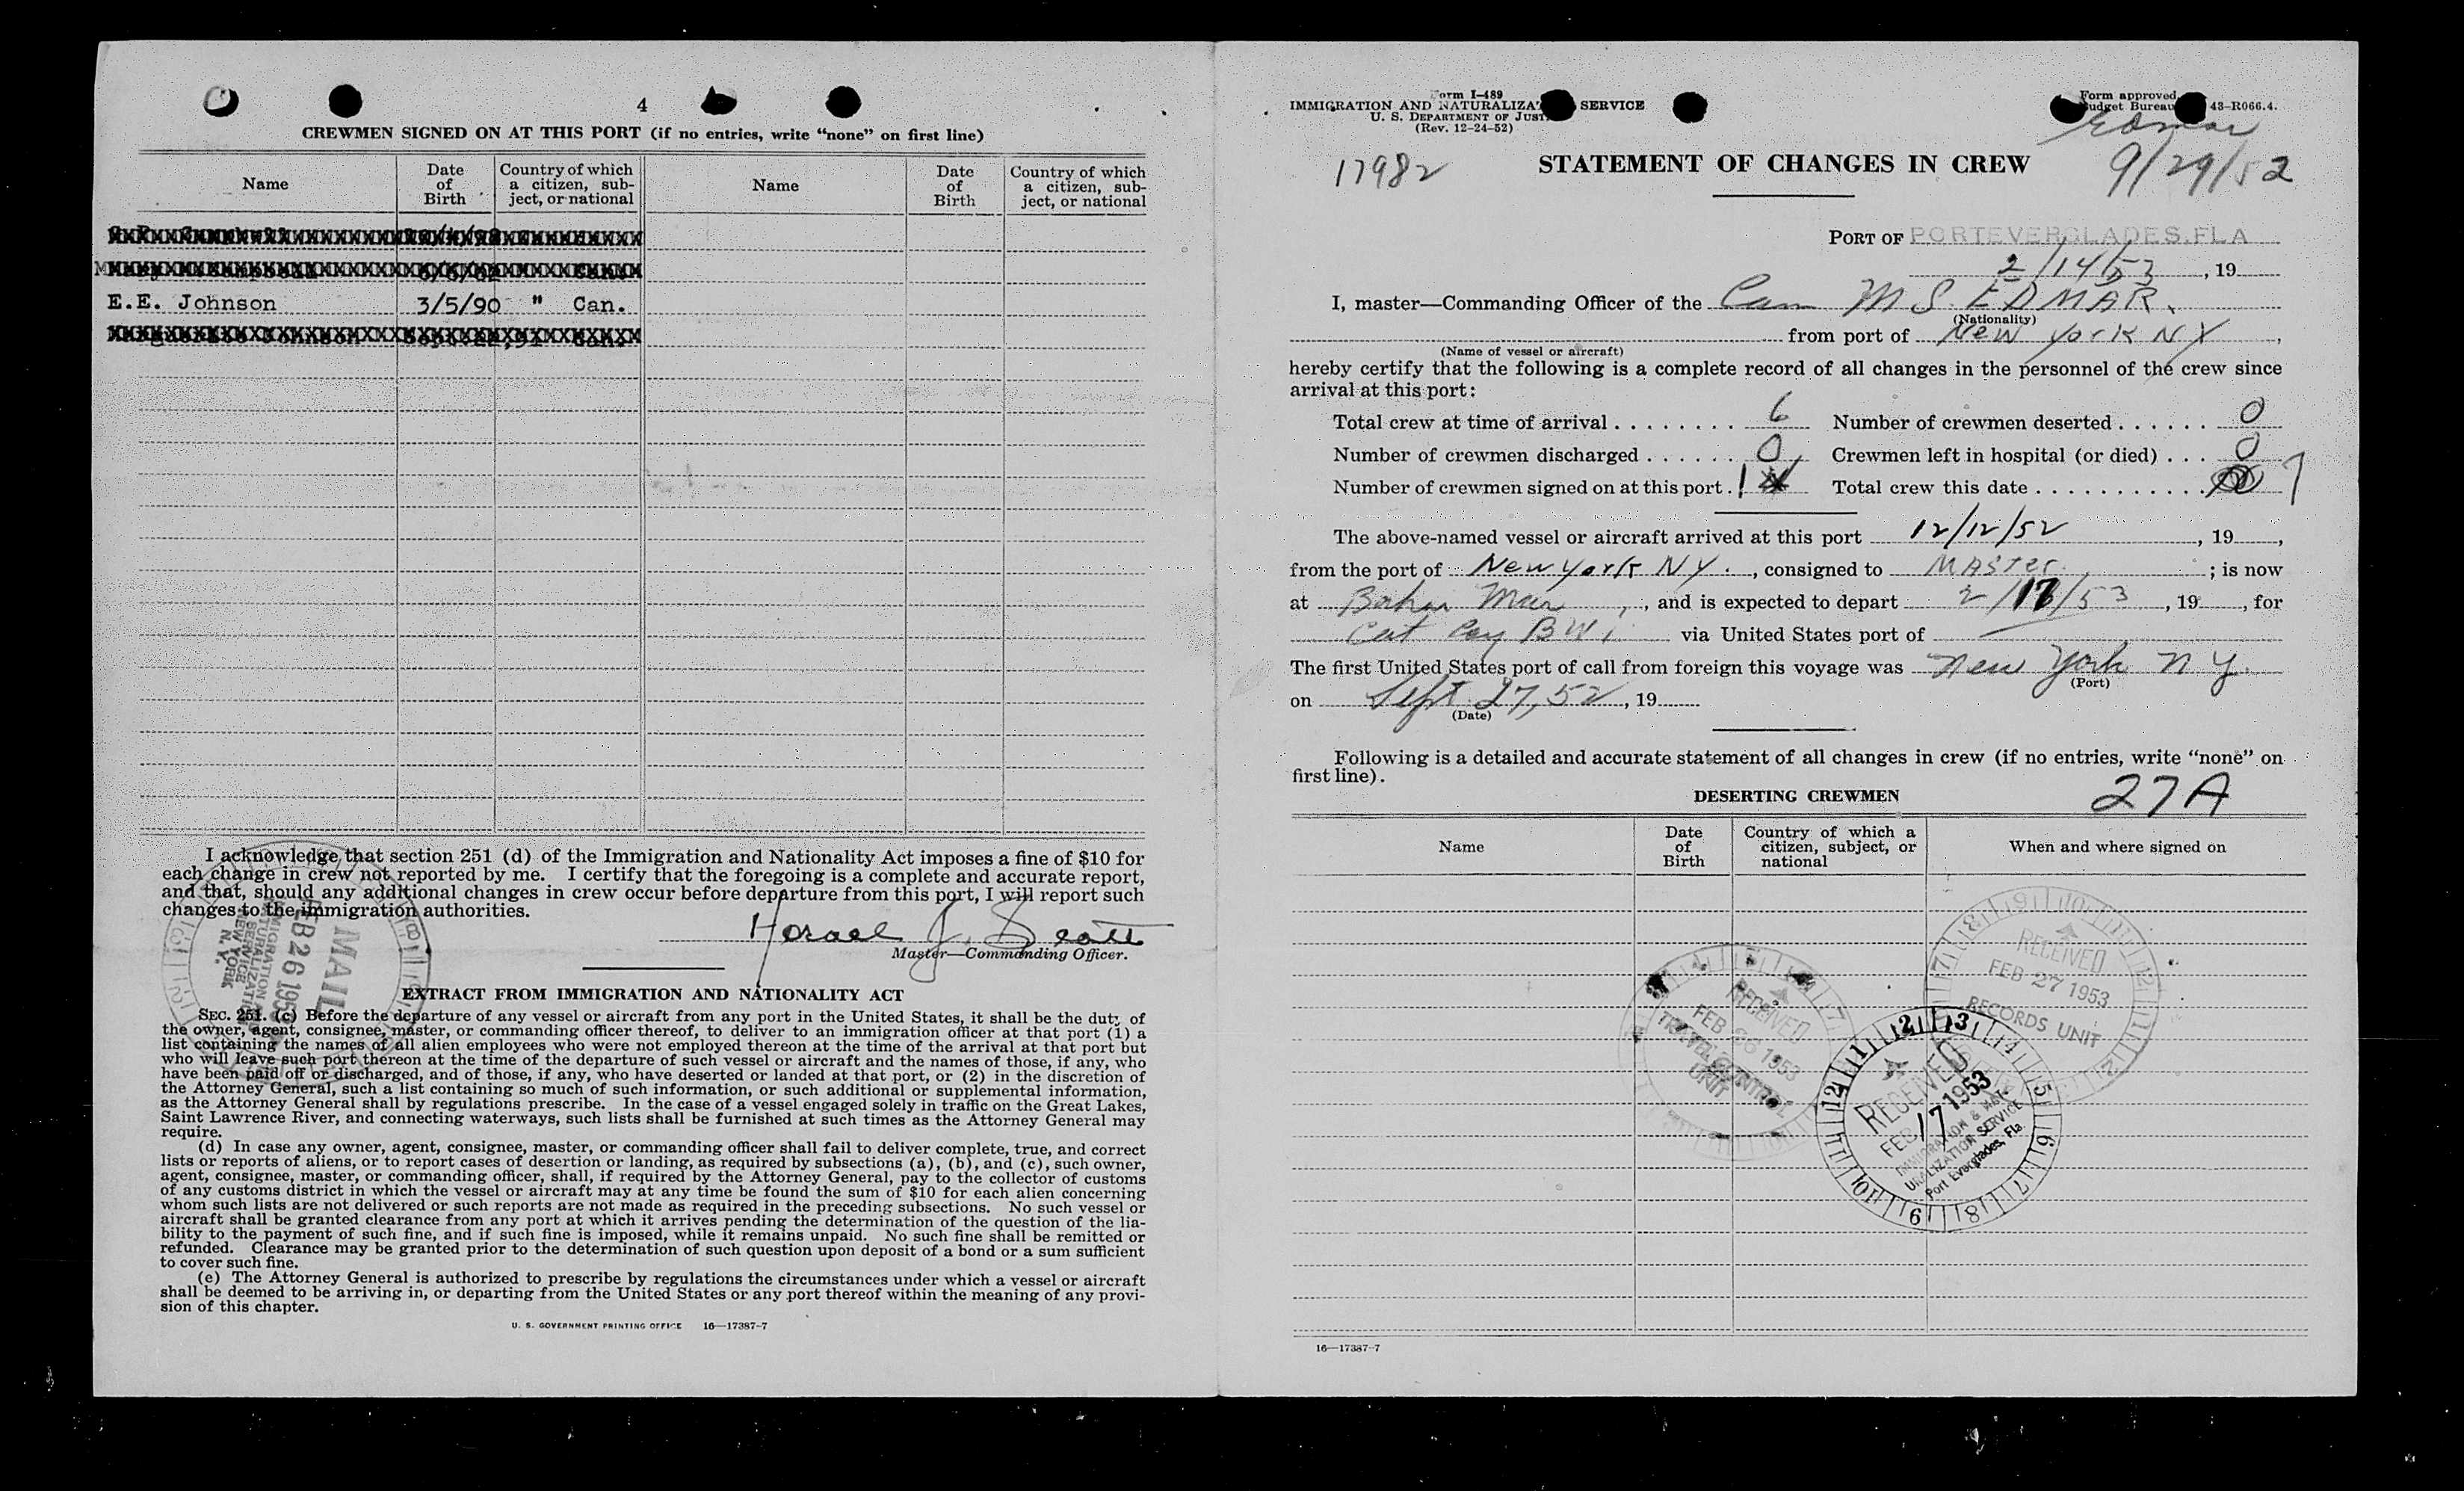 4
CREWMEN SIGNED ON AT THIS PORT (if no entries, write “none” on first line)
Name
Date of Birth
Country of which a citizen, sub-ject, or national
Name
Date of Birth
Country of which a citizen, sub-ject, or national
E.E. Johnson 3/5/90 " Can.
I acknowledge that section 251 (d) of the Immigration and Nationality Act imposes a fine of $10 for
each change in crew not reported by me. I certify that the foregoing is a complete and accurate report,
and that, should any additional changes in crew occur before departure from this port, I will report such
changes to the immigration authorities.
Master—Commanding Officer.
MAIL
FEB 26 1953
IMMIGRATION
NATURALIZATION
SERVICE
NEW YORK
N. Y.
EXTRACT FROM IMMIGRATION AND NATIONALITY ACT
SEC. 251. (c) Before the departure of any vessel or aircraft from any port in the United States, it shall be the duty of
the owner, agent, consignee, master, or commanding officer thereof, to deliver to an immigration officer at that port (1) a
list containing the names of all alien employees who were not employed thereon at the time of the arrival at that port but
who will leave such port thereon at the time of the departure of such vessel or aircraft and the names of those, if any, who
have been paid off or discharged, and of those, if any, who have deserted or landed at that port, or (2) in the discretion of
the Attorney General, such a list containing so much of such information, or such additional or supplemental information,
as the Attorney General shall by regulations prescribe. In the case of a vessel engaged solely in traffic on the Great Lakes,
Saint Lawrence River, and connecting waterways, such lists shall be furnished at such times as the Attorney General may
require.
(d) In case any owner, agent, consignee, master, or commanding officer shall fail to deliver complete, true, and correct
lists or reports of aliens, or to report cases of desertion or landing, as required by subsections (a), (b), and (c), such owner,
agent, consignee, master, or commanding officer, shall, if required by the Attorney General, pay to the collector of customs
of any customs district in which the vessel or aircraft may at any time be found the sum of $10 for each alien concerning
whom such lists are not delivered or such reports are not made as required in the preceding subsections. No such vessel or
aircraft shall be granted clearance from any port at which it arrives pending the determination of the question of the lia-
bility to the payment of such fine, and if such fine is imposed, while it remains unpaid. No such fine shall be remitted or
refunded. Clearance may be granted prior to the determination of such question upon deposit of a bond or a sum sufficient
to cover such fine.
(e) The Attorney General is authorized to prescribe by regulations the circumstances under which a vessel or aircraft
shall be deemed to be arriving in, or departing from the United States or any port thereof within the meaning of any provi-
sion of this chapter.
U. S. GOVERNMENT PRINTING OFFICE 16—17387-7
Form I-489
IMMIGRATION AND NATURALIZA SERVICE
U. S. DEPARTMENT OF JUST
(Rev. 12-24-52)
Form approved
Budget Bureau 43-R066.4.
Edmar
17982
STATEMENT OF CHANGES IN CREW
9/29/52
PORT OF PORT EVERGLADES, FLA
2/14/53, 19
I, master—Commanding Officer of the Can M S. EDMAR.
(Nationality)
from port of New York NY,
(Name of vessel or aircraft)
hereby certify that the following is a complete record of all changes in the personnel of the crew since
arrival at this port:
Total crew at time of arrival 6 Number of crewmen deserted 0
Number of crewmen discharged 0 Crewmen left in hospital (or died) 0
Number of crewmen signed on at this port 1 Total crew this date 7
The above-named vessel or aircraft arrived at this port 12/12/52, 19,
from the port of New York NY., consigned to Master; is now
at Bahia Mar, and is expected to depart 2/17/53, 19, for
Cat Cay BWI via United States port of
The first United States port of call from foreign this voyage was New York N Y.
(Port)
on Sept. 27, 52, 19
(Date)
Following is a detailed and accurate statement of all changes in crew (if no entries, write “none” on
first line).
27A
DESERTING CREWMEN
Name
Date of Birth
Country of which a citizen, subject, or national
When and where signed on
RECEIVED
FEB 27 1953
RECORDS UNIT
RECEIVED
FEB 26 1953
TRAVEL CONTROL
UNIT
RECEIVED
FEB 17 1953
IMMIGRATION & NAT-
URALIZATION SERVICE
Port Everglades, Fla.
16—17387-7